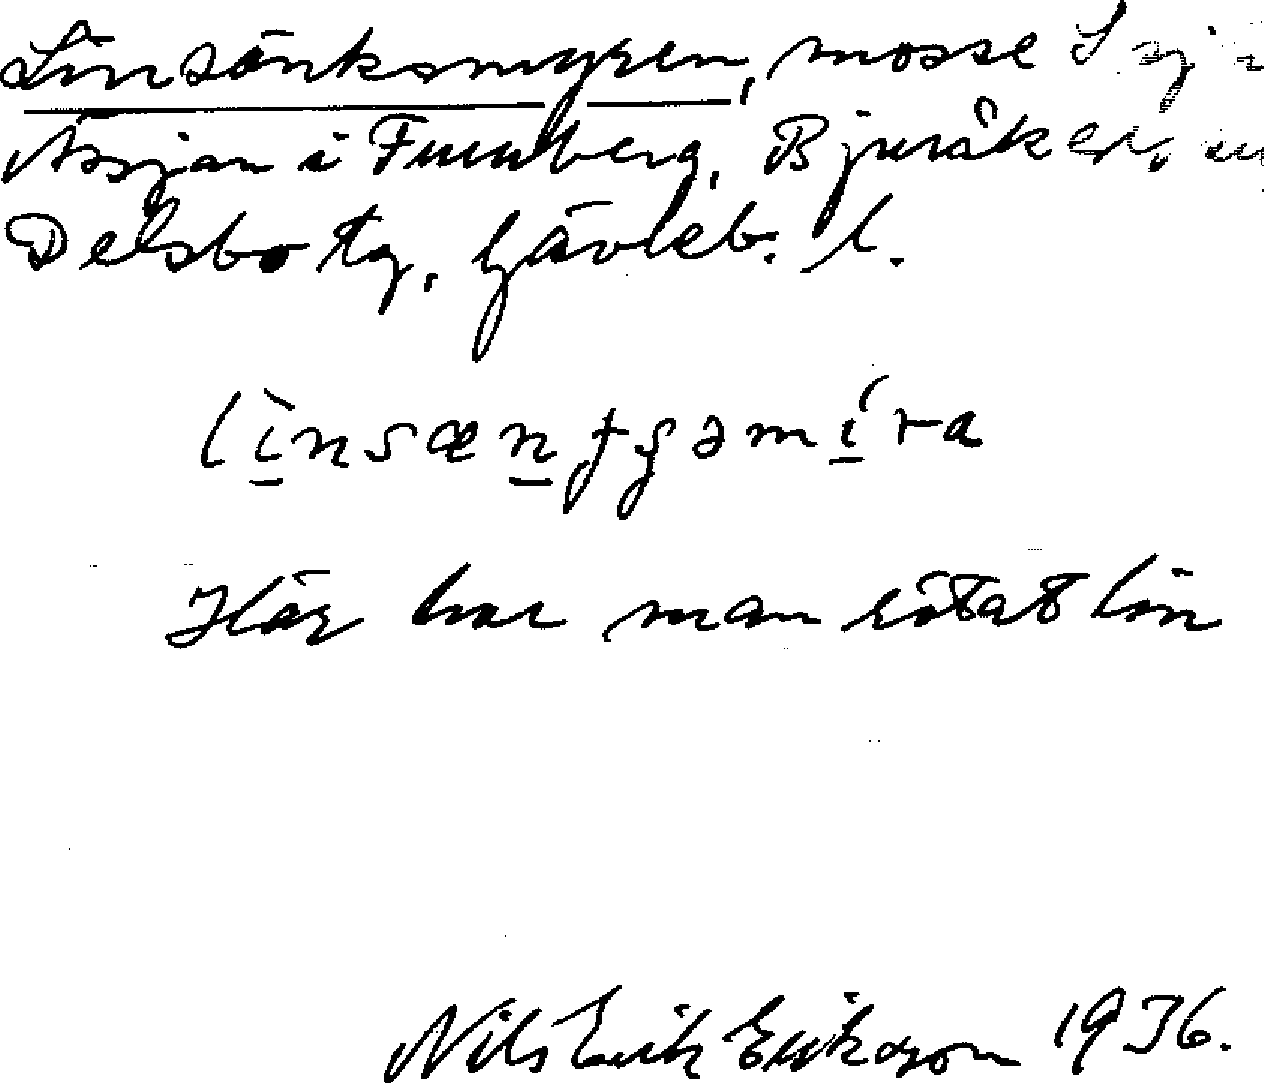 Linsänksmyren, mosse S
Åssjan i Furuberg, Bjuråkers
Delsbo tg, Gävleb. l.
Här har man rötat lin
Nils Erik Erikson 1936.